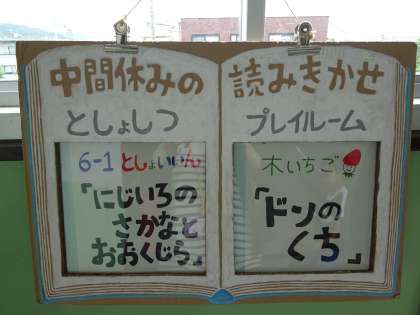 中間休みの
としょしつ
6-1 としょいいん
「にじいろの
さかなと
おおくじら」
読みきかせ
プレイルーム
木いちご
「ドンの
くち」